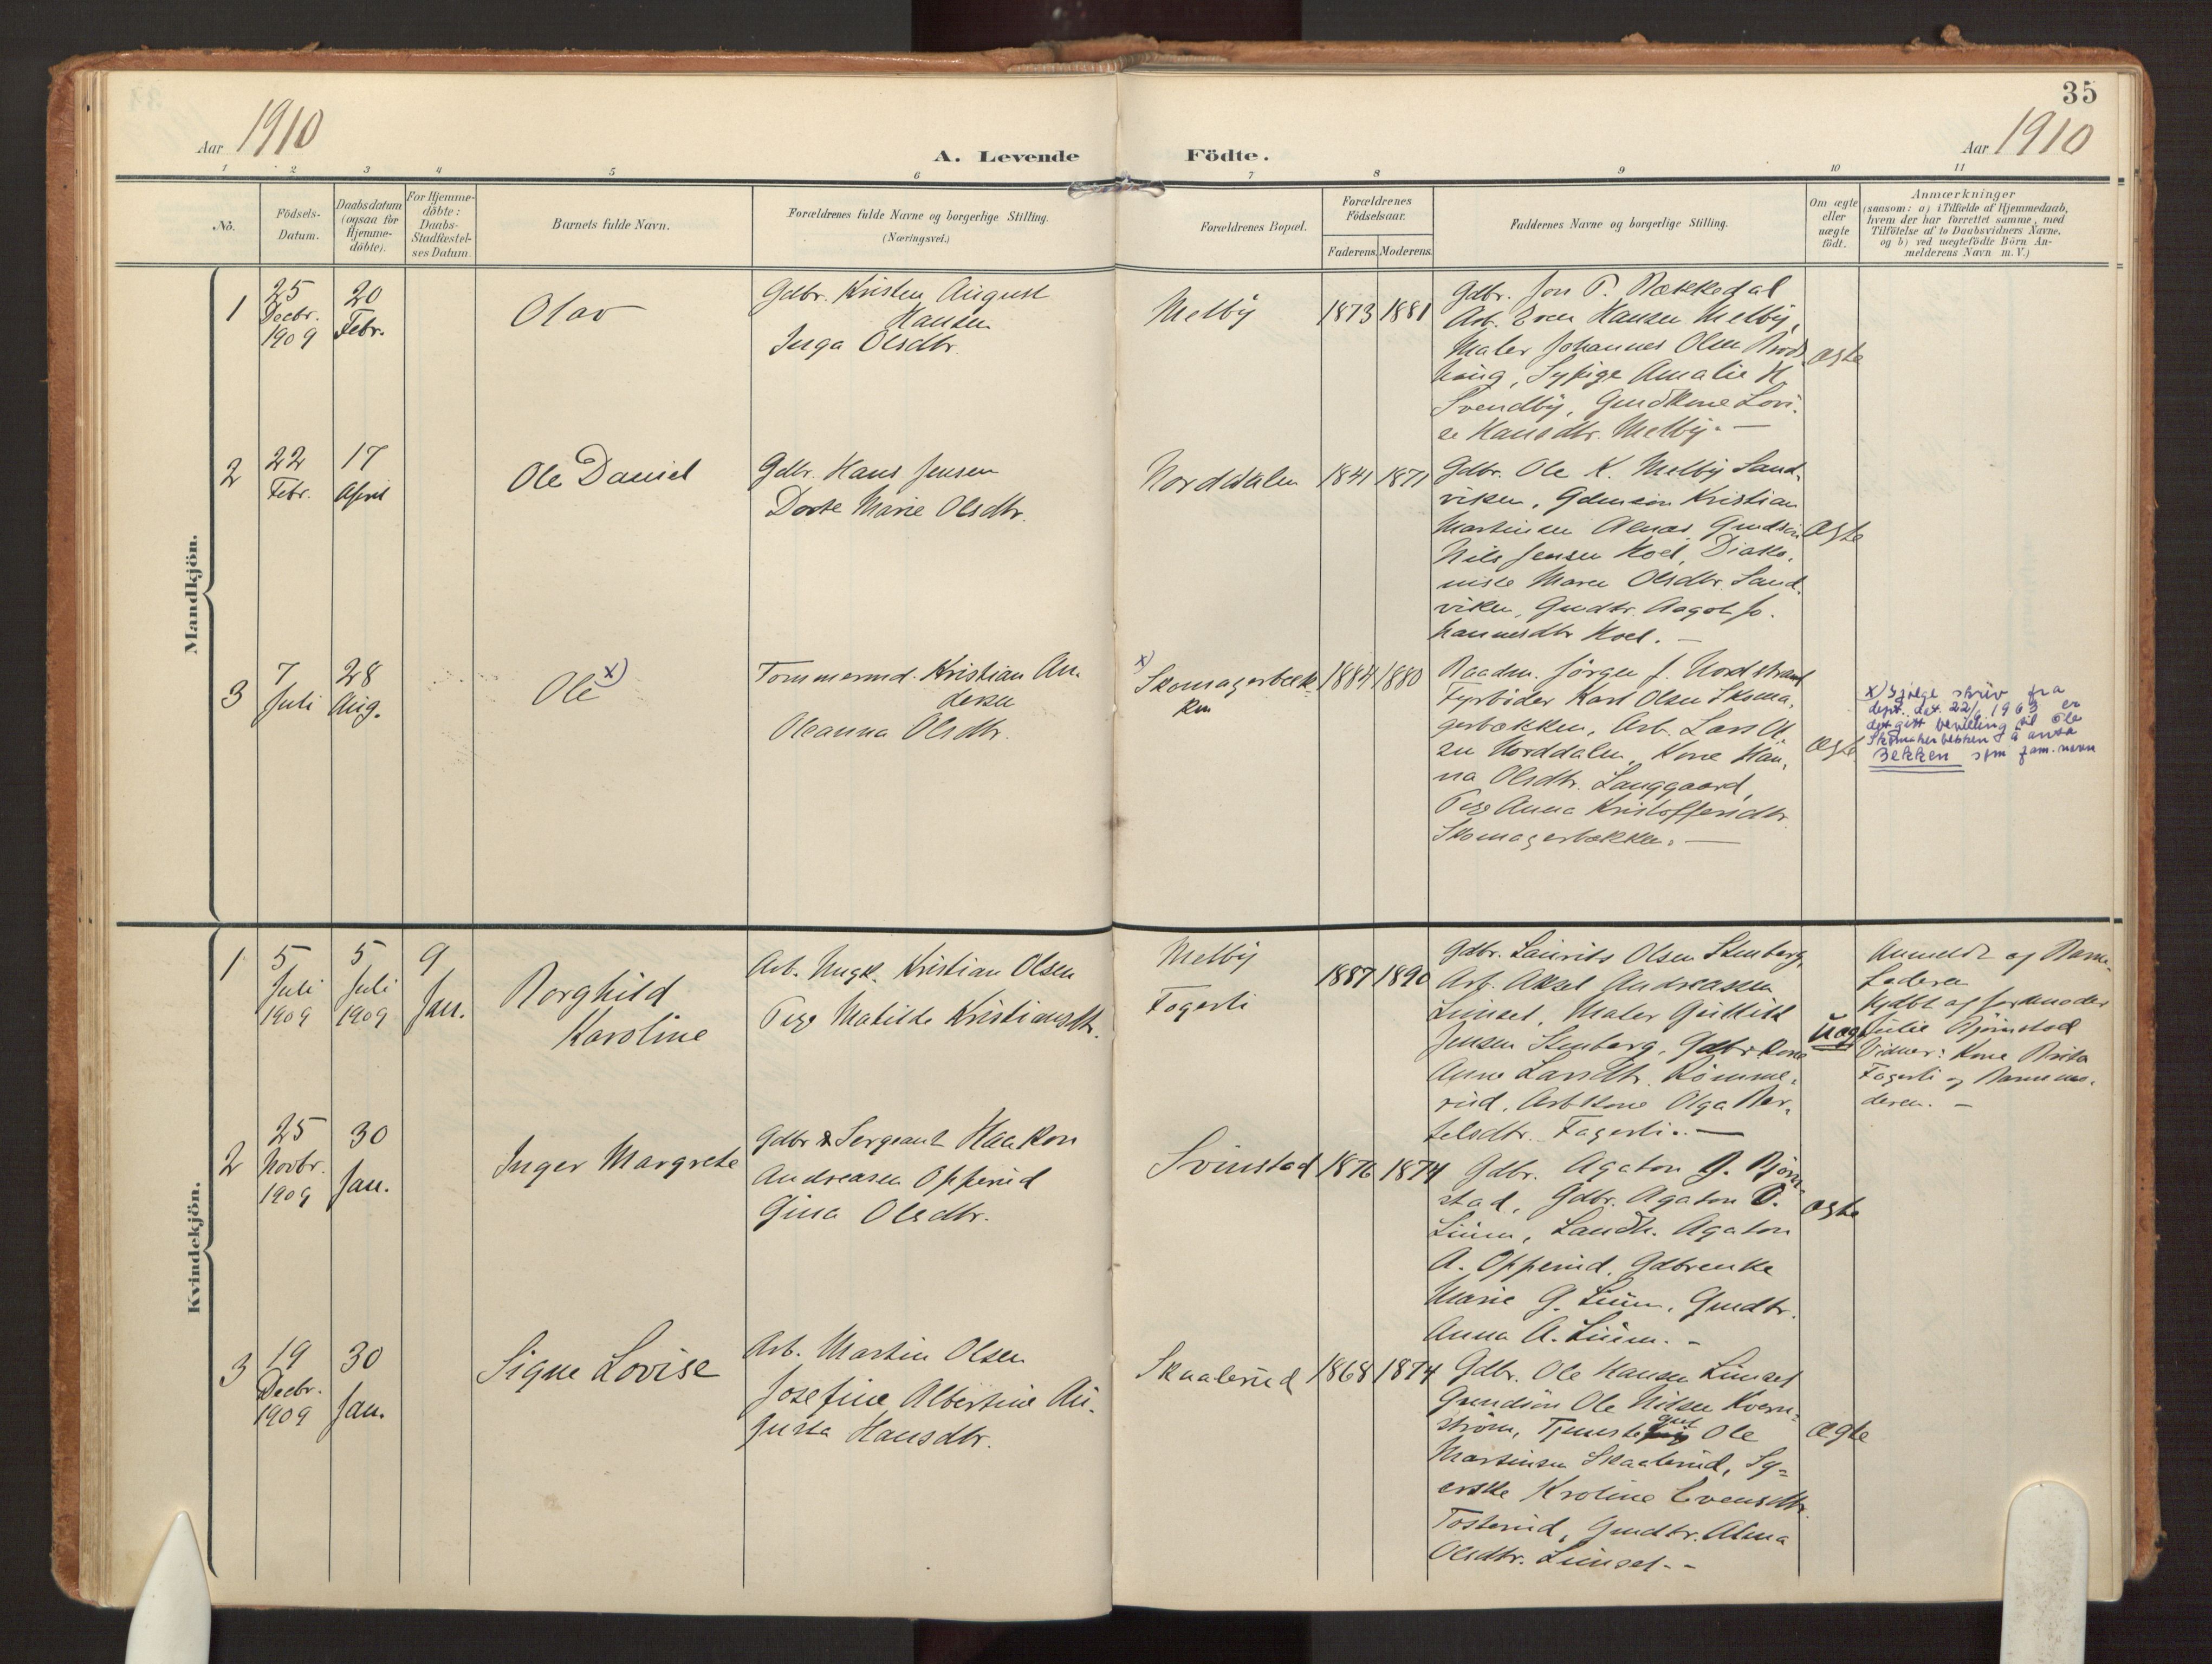 35
Aar 1910
A. Levende Födte.
Aar 1910
1 2 3 4 5 6 7 8 9 10 11
No.
Födsels-
Datum.
Daabsdatum
(ogsaa for
Hjemme-
döbte).
For Hjemme-
döbte:
Daabs-
Stadfæstel-
ses Datum.
Barnets fulde Navn.
Forældrenes fulde Navne og borgerlige Stilling.
(Næringsvei.)
Forældrenes Bopæl.
Forældrenes
Födselsaar.
Faderens. Moderens.
Faddernes Navne og borgerlige Stilling.
Om ægte
eller
uægte
födt.
Anmærkninger
(saasom: a) i Tilfælde af Hjemmedaab,
hvem der har forrettet samme, med
Tilföielse af to Daabsvidners Navne,
og b) ved uægtefödte Börn An-
melderens Navn m. V.)
Mandkjön.
1
25
Decbr.
1909
20
Febr.
Olav
Gdbr. Kristen August
Hansen
Inga Olsdtr.
Melby
1873 1881
Gdbr. Jon P. Bækkedal
Arb. Even Hansen Melby,
Maler Johannes Olsen Brods
haug, Sypige Amalie H
Svendby, Gmdkone Lovi-
se Hansdtr. Melby. —
ægte
2
22
Febr.
17
April
Ole Daniel
Gdbr. Hans Jensen
Dorte Marie Olsdtr.
Norddalen
1841 1871
Gdbr. Ole K. Melby Sand-
viken, Gdmsön Kristian
Martinsen Aenæs, Gmdsön
Nils Jensen Hoel, Diako-
nisse Maren Olsdtr. Sand-
viken, Gmdtr. Aagot Jo-
hannesdtr Hoel. —
ægte
3
7
Juli
28
Aug.
Ole x)
Tømmermd. Kristian An-
dersen
Oleanna Olsdtr.
x)
Skomagerbæk-
ken
1884 1880
Baadm. Jörgen J. Nordstrand
Fyrböder Karl Olsen Skoma-
gerbækken, Arb. Lars Ol-
sen Norddalen, Kone Han-
na Olsdtr. Langgaard,
Pige Anna Kristoffersdtr.
Skomagerbækken. —
ægte
x) Ifølge skriv fra
dept. dat. 22/ 1963 er
det gitt bevilling til Ole
Skomakerbekken å anta
Bekken som fam.navn
Kvindekjön.
1
5
Juli
1909
5
Juli
1909
9
Jan.
Borghild
Karoline
Arb. Ungk. Kristian Olsen
Pige Matilde Kristiansdtr.
Melby
Fagerli
1887 1890
Gdbr. Laurits Olsen Stenberg,
Arb. Aksel Andreassen
Linset, Maler Gullik
Jensen Stenberg, Gdbrkone
Anne Larsdtr. Rømme-
rud, Arbkone Olga Ber-
telsdtr. Fagerli. —
Uægte
Anmeldt af Barne-
faderen
hjdbt af jordmoder
Julie Bjørnstad
Vidner: Kone Berta
Fagerli og Barnemo-
deren. —
2
25
Novbr.
1909
30
Jan.
Inger Margrete
Gdbr & Sergeant Haakon
Andreasen Opperud
Gina Olsdtr.
Svinstad
1876 1874
Gdbr. Agaton G. Bjørn-
stad, Gdbr. Agaton O.
Lium, Landh. Agaton
A. Opperud, Gdbrenke
Marie G. Lium, Gmdtr.
Anna A. Lium. -
ægte
3
19
Decbr.
1909
30
Jan.
Signe Lovise
Arb. Martin Olsen
Josefine Albertine Au-
gusta Hansdtr.
Skaalerud
1868 1874
Gdbr. Ole Hansen Linset
Gmndsön Ole Nilsen Kvern-
ström, Tjenestegut Ole
Martinsen Skaalerud, Sy-
erske Kroline Evensdtr.
Tosterud, Gmdtr. Alma
Olsdtr. Linset. -
ægte